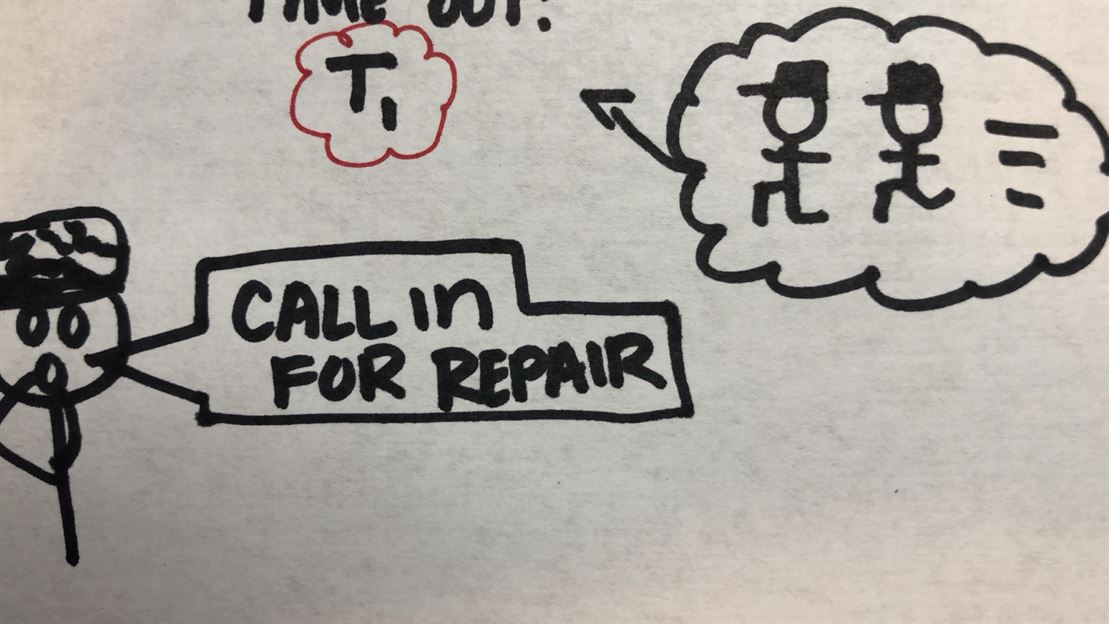 TIME OUT!
T1
CALL in
FOR REPAIR